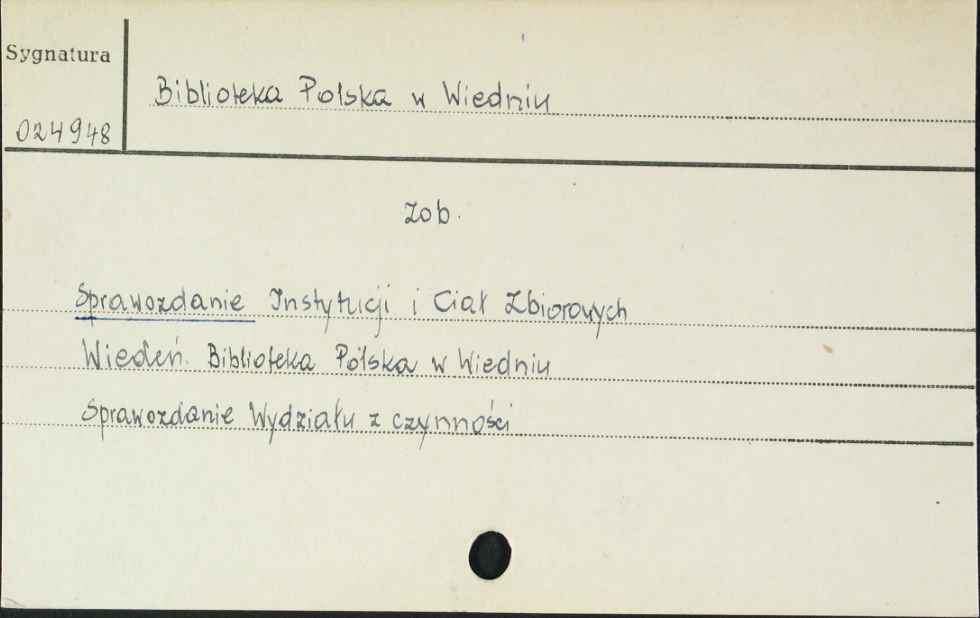 Sygnatura
Biblioteka Polska w Wiedniu
024948
Zob.
Sprawozdanie Instytucji i Ciał Zbiorowych
Wiedeń. Biblioteka Polska w Wiedniu
Sprawozdanie Wydziału z czynności